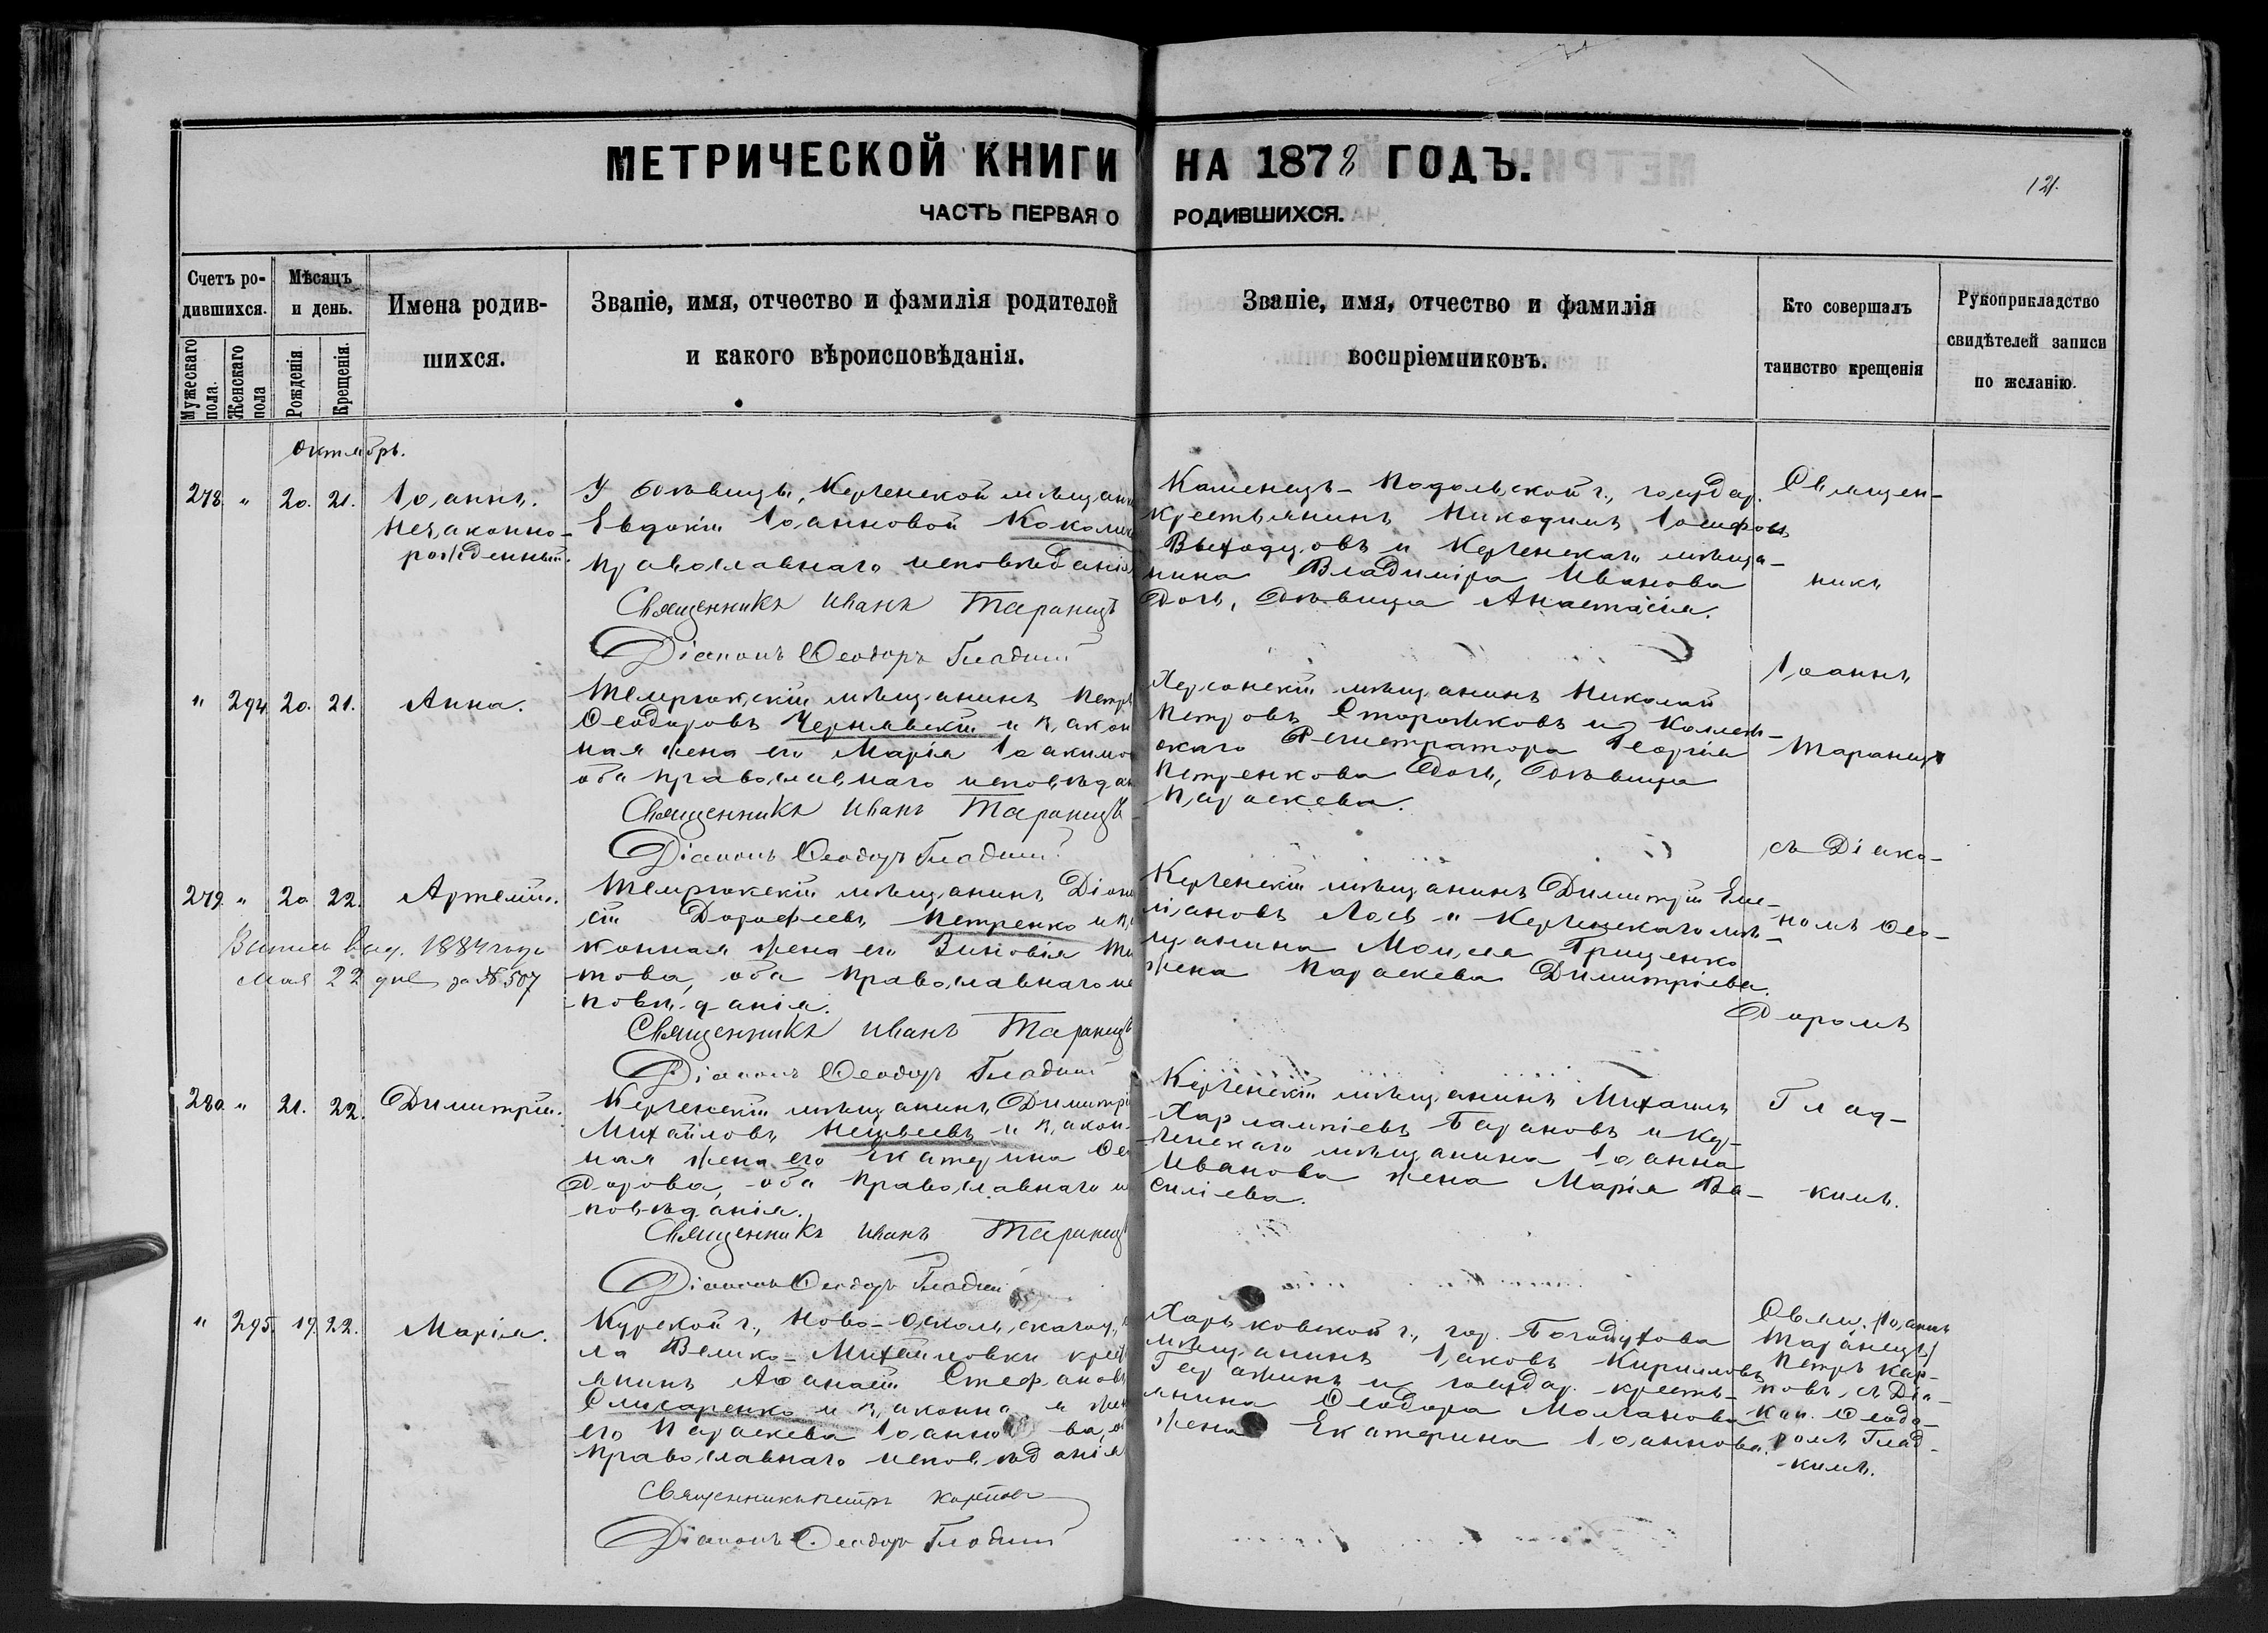 МЕТРИЧЕСКОЙ КНИГИ НА 1878 ГОДЪ.
121.
ЧАСТЬ ПЕРВАЯ О РОДИВШИХСЯ.
Счетъ ро-
дившихся.
Мужескаго пола.
Женскаго пола
Мѣсяцъ
и день.
Рожденія.
Крещенія.
Имена родив-
шихся.
Званіе, имя, отчество и фамилія родителей
и какого вѣроисповѣданія.
Званіе, имя, отчество и фамилія
воспріемниковъ.
Кто совершалъ
таинство крещенія
Рукоприкладство
свидѣтелей записи
по желанію.
Октябрь.
278. " 20. 21. Іоаннъ.
незаконно-
рожденный.
У дѣвицы, Керченской мѣщан
Евдокіи Іоанновой
православнаго исповѣданія
Священникъ Иванъ Таранецъ
Діаконъ Ѳеодоръ Гладкій
Каменецъ-Подольской г., государ.
крестьянинъ Никодимъ Іосифовъ
Выходцовъ и Керченскаго мѣща-
нина Владиміра Иванова
дочь, дѣвица Анастасія.
" 294. 20. 21. Анна.
Темрюкскій мѣщанинъ Петръ
Ѳеодоровъ Чернявскій и закон
ная жена его Марія Іоакимо
оба православнаго исповѣдан
Священникъ Иванъ Таранецъ
Діаконъ Ѳеодоръ Гладкій
Херсонскій мѣщанинъ Николай
Петровъ Сторожковъ и Коллеж-
скаго Регистратора Георгія
Петренкова дочь, дѣвица
Параскева.
279. " 20 22. Артемій.
Выпись выд. 1884 года
Мая 22 дня за № 507
Темрюкскій мѣщанинъ Діони
сій Дорофеевъ Петренко и за
конная жена его Зиновія Ти
това, оба православнаго ис
повѣданія.
Священникъ Иванъ Таранецъ
Діаконъ Ѳеодоръ Гладкій
Керченскій мѣщанинъ Димитрій Еме-
ліановъ Лось и Керченскаго мѣ-
щанина Моисея Грищенко
жена Параскева Димитріева.
280 " 21. 22. Димитрій.
Керченскій мѣщанинъ Димитрі
Михайловъ и закон-
ная жена его Екатерина Ѳео
дорова, оба православнаго и
повѣданія.
Священникъ Иванъ Таранецъ
Діаконъ Ѳеодоръ Гладкій
Керченскій мѣщанинъ Михаилъ
Харлампіевъ Барановъ и Кер-
ченскаго мѣщанина Іоанна
Иванова жена Марія Ва-
силіева.
Священ-
никъ
Іоаннъ
Таранецъ
съ Діако-
номъ Ѳео-
доромъ
Глад-
кимъ.
" 295. 19. 22. Марія.
Курской г., Ново-Оскольскаго у.,
ла Велико-Михайловки крес
янинъ Аѳанасій Стефановъ
Слисаренко и законная жен
его Параскева Іоаннова, о
православнаго исповѣданія
Священникъ Петръ Карповъ
Діаконъ Ѳеодоръ Гладкій
Харьковской г., гор. Богодухова
мѣщанинъ Іаковъ Кирилловъ
Гаражинъ и государ. кресть-
янина Ѳеодора Молчанова
жена Екатерина Іоаннова.
Свящ. Іоаннъ
Таранецъ,
Петръ Кар-
повъ, съ Діа-
кон. Ѳеодо-
ромъ Глад-
кимъ.